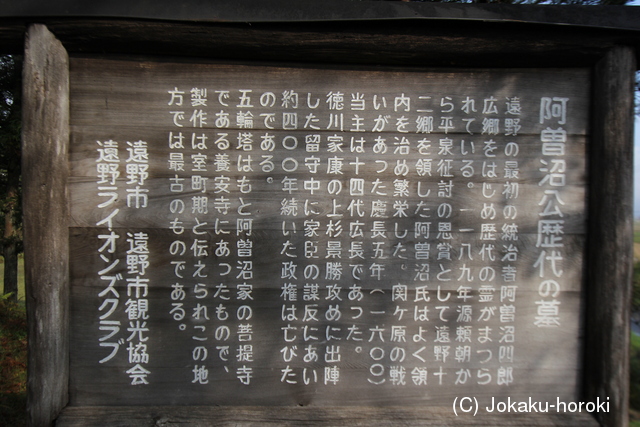 阿曽沼公歴代の墓
遠野の最初の統治者阿曽沼四郎
広郷をはじめ歴代の霊がまつら
れている。一一八九年源頼朝か
ら平泉征討の恩賞として遠野十
二郷を領した阿曽沼氏はよく領
内を治め繁栄した。関ヶ原の戦
いがあった慶長五年(一六〇〇)
当主は十四代広長であった。
徳川家康の上杉景勝攻めに出陣
した留守中に家臣の謀反にあい
約四〇〇年続いた政権はむびた
のである。
五輪塔はもと阿曽沼家の菩提寺
である養安寺にあったもので、
製作は室町期と伝えられこの地
方では最古のものである。
遠野市 遠野市観光協会
遠野ライオンズクラブ
(C) Jokaku-horoki